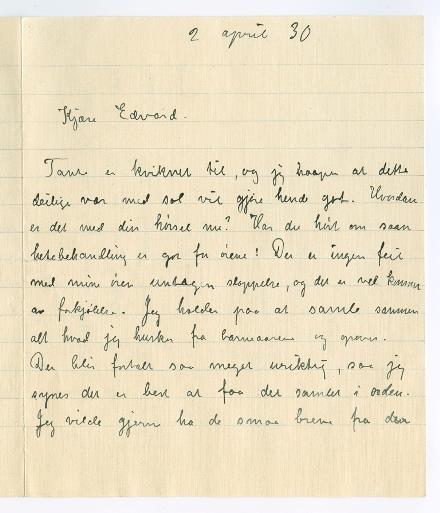 2 april 30
Kjære Edvard.
Tante er kviknet til, og jeg haaper at dette
deilige vær med sol vil gjøre hende got. Hvordan
er det med din hørsel nu? Har du hørt om saan
hetebehandling er got for ørene! Der er ingen feil
med mine ører undtagen sløppelse, og det er vel kommet
av forkjølelse. Jeg holder paa at samle sammen
alt hvad jeg husker fra barneaarene og opover.
Der blir fortalt saa meget uriktig, saa jeg
synes det er best at faa det samlet i orden.
Jeg vilde gjerne ha de smaa brevene fra den